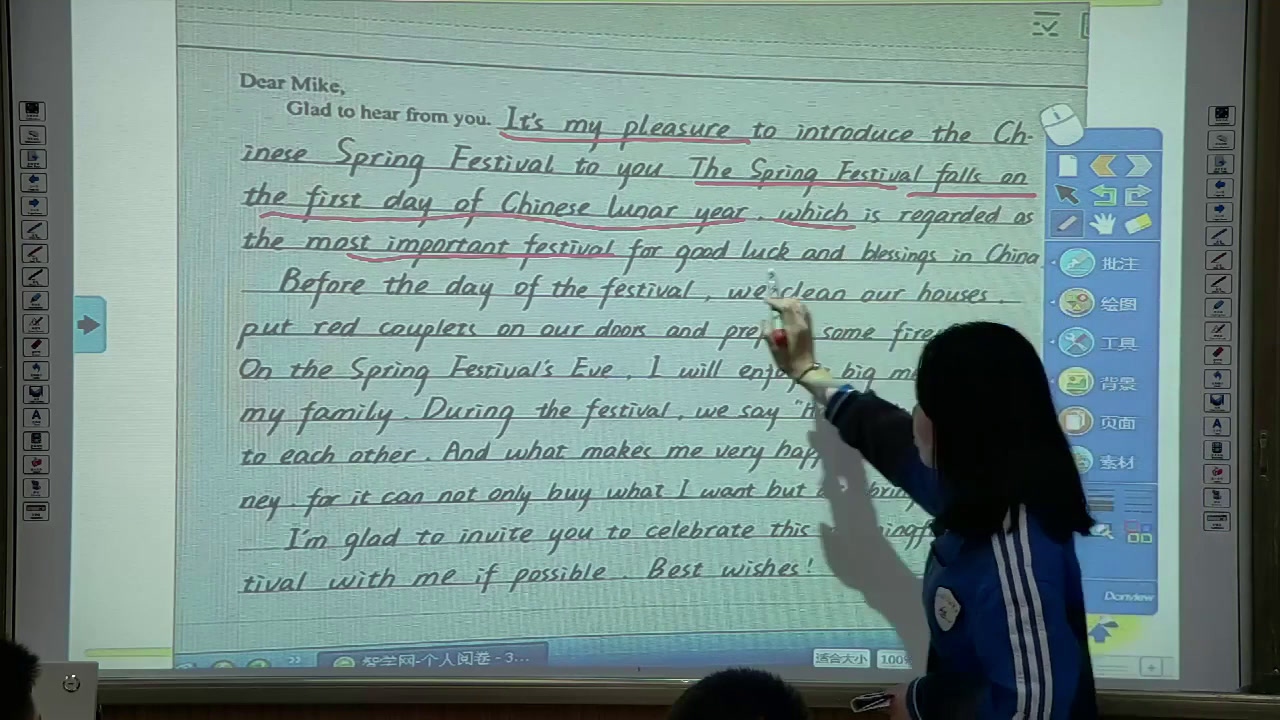 Dear Mike,
Glad to hear from you. It's my pleasure to introduce the Ch-
inese Spring Festival to you The Spring Festival falls on
the first day of Chinese lunar year, which is regarded as
the most important festival for good luck and blessings in China
Before the day of the festival, we clean our houses,
put red couplets on our doors and some
On the Spring Festival's Eve, I will big
my family. During the festival, we say
to each other. And what makes me very
ney, for it can not only buy what I want but
I'm glad to invite you to celebrate this
tival with me if possible. Best wishes!
批注
绘图
工具
背景
页面
素材
Donview
智学网-个人阅卷 - 3...
适合大小